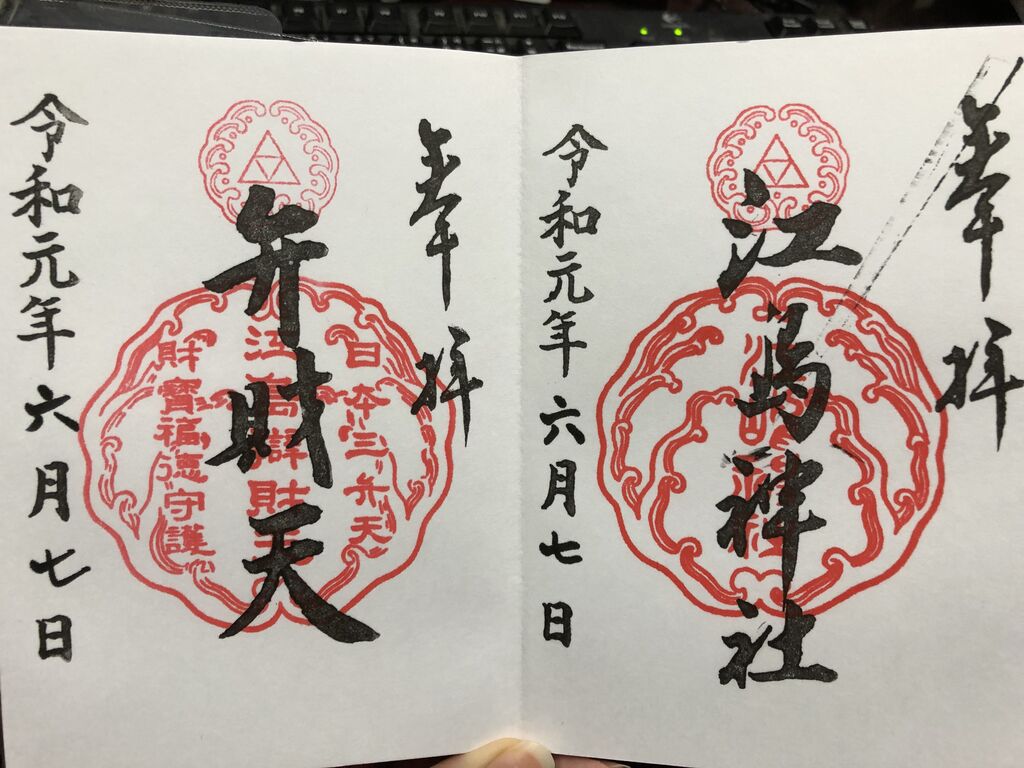 奉拝
江島神社
令和元年六月七日
奉拝
日本三弁天
江島辯財天
財寳福徳守護
弁財天
令和元年六月七日